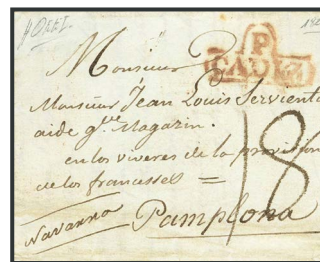 P
CADIZ
Monsieur
Monsieur Jean Louis Servient
aide gde Magazin.
en los viveres de la provision
de los francesses =
Navarra
Pamplona
18